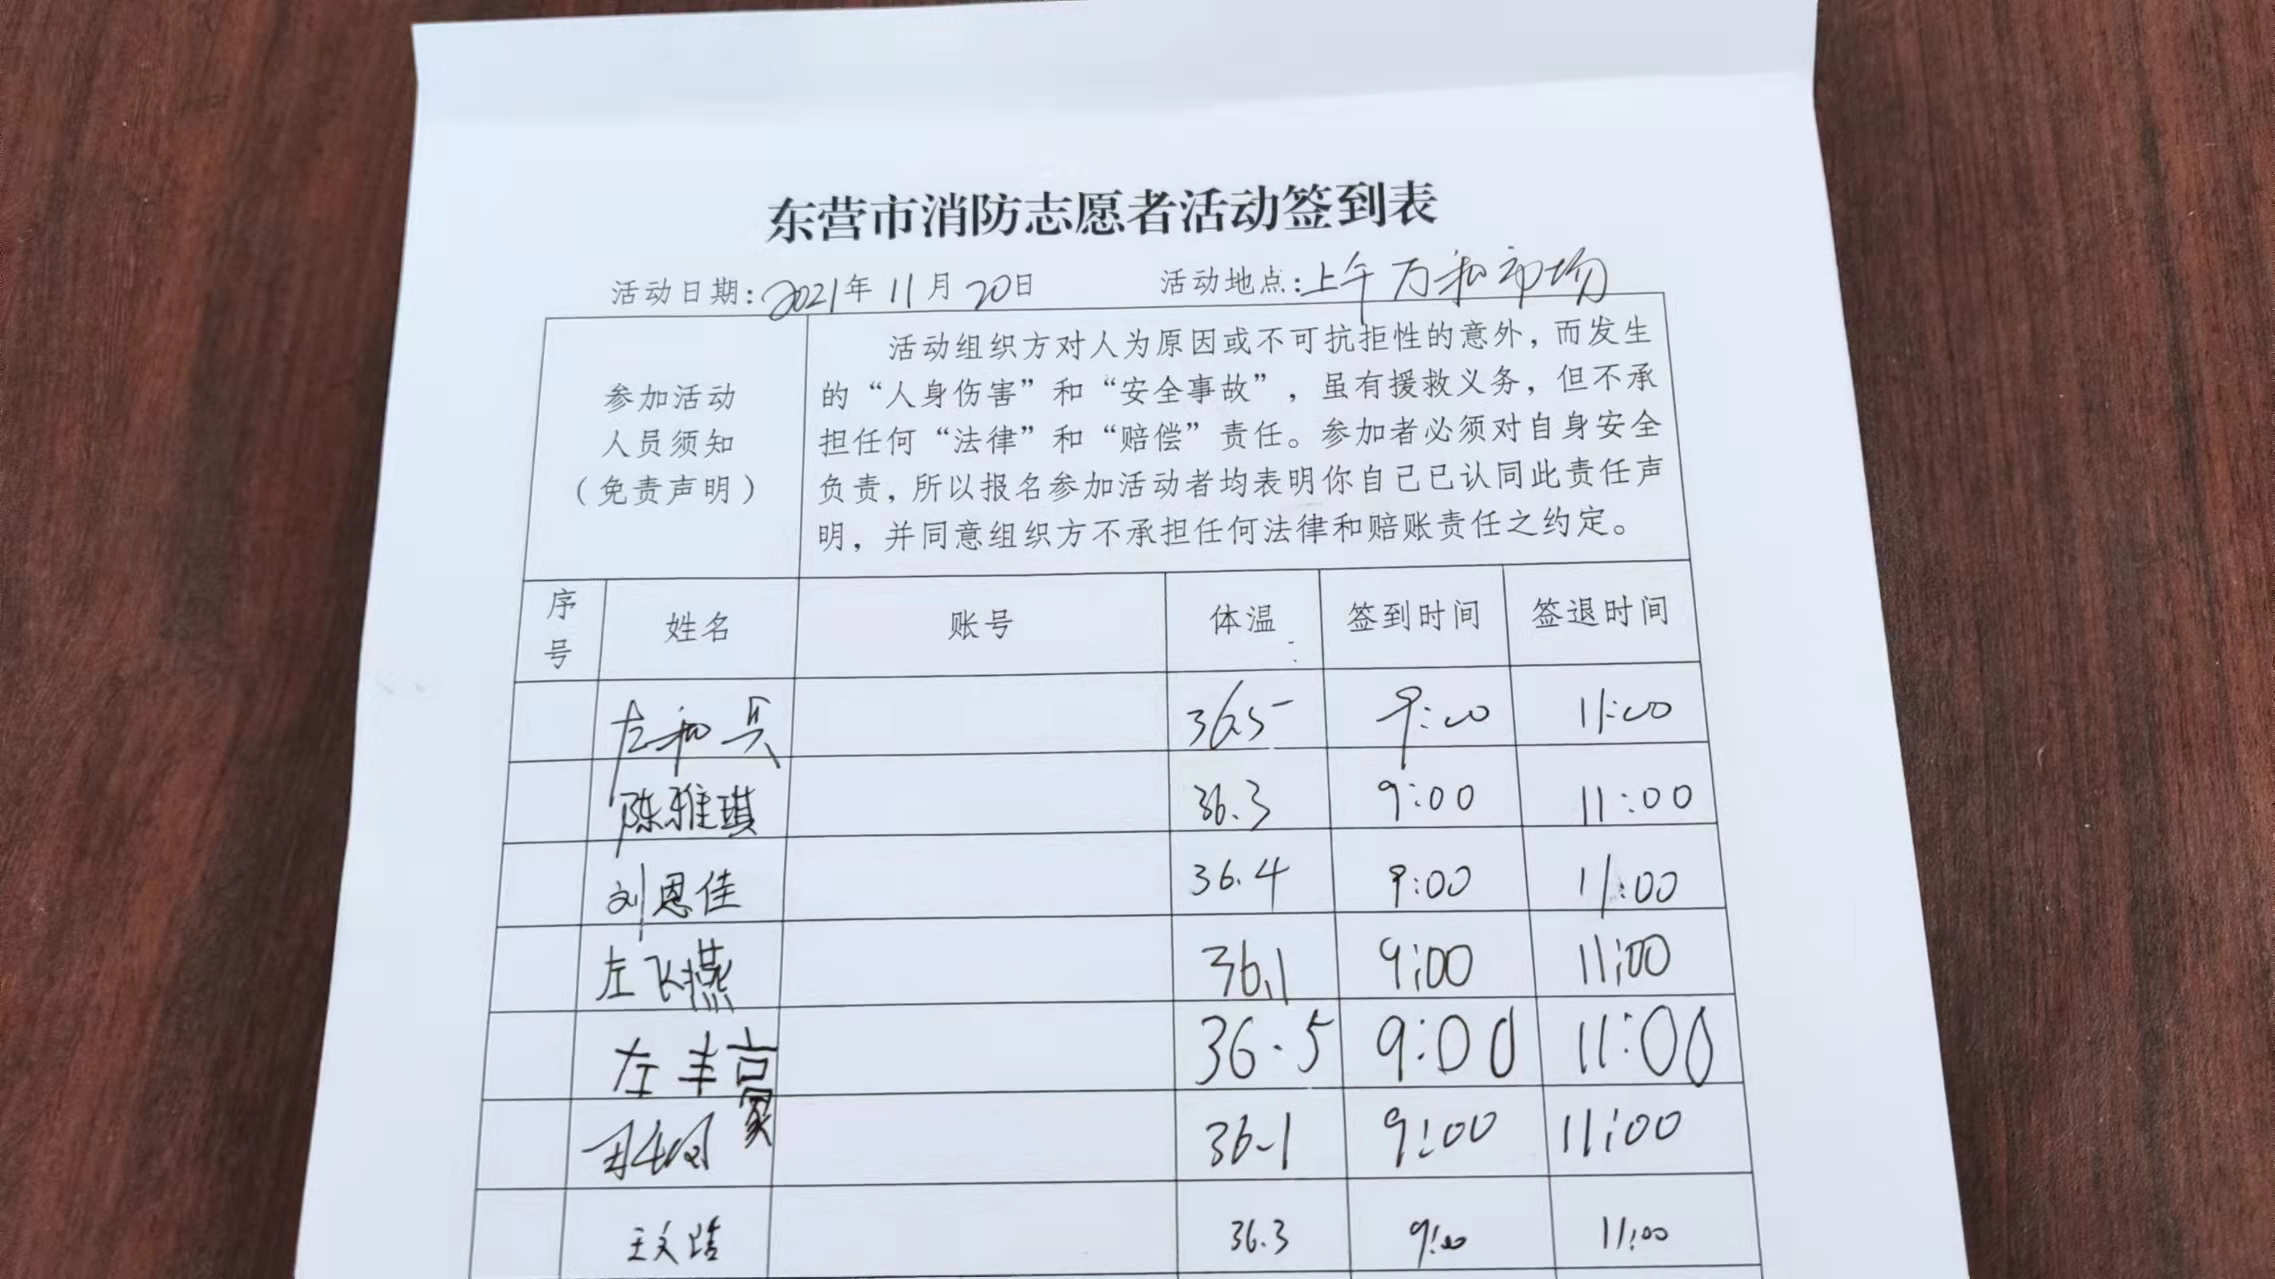 东营市消防志愿者活动签到表
活动日期：2021年 11月 20日 活动地点：上午万和市场
参加活动
人员须知
（免责声明）
活动组织方对人为原因或不可抗拒性的意外，而发生
的“人身伤害”和“安全事故”，虽有援救义务，但不承
担任何“法律”和“赔偿”责任。参加者必须对自身安全
负责，所以报名参加活动者均表明你自己已认同此责任声
明，并同意组织方不承担任何法律和赔账责任之约定。
序号 姓名 账号 体温 签到时间 签退时间
左和兵 36.5 9:00 11:00
陈雅琪 36.3 9:00 11:00
刘恩佳 36.4 9:00 11:00
左飞燕 36.1 9:00 11:00
左丰豪 36.5 9:00 11:00
36.1 9:00 11:00
王文喆 36.3 9:00 11:00